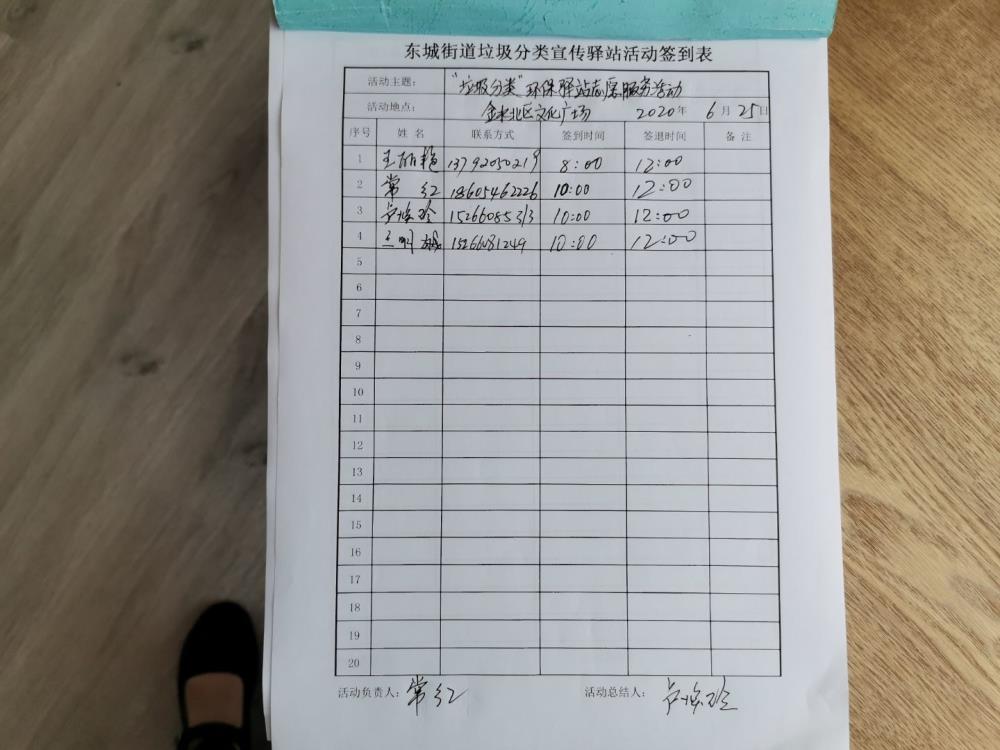 东城街道垃圾分类宣传驿站活动签到表
活动主题： "垃圾分类"环保驿站志愿服务活动
活动地点： 金水北区文化广场 2020年 6月25日
序号 姓名 联系方式 签到时间 签退时间 备注
1 王丽艳 13792050219 8:00 12:00
2 常红 18605462226 10:00 12:00
3 10:00 12:00
4 10:00 12:00
5
6
7
8
9
10
11
12
13
14
15
16
17
18
19
20
活动负责人： 常红 活动总结人：